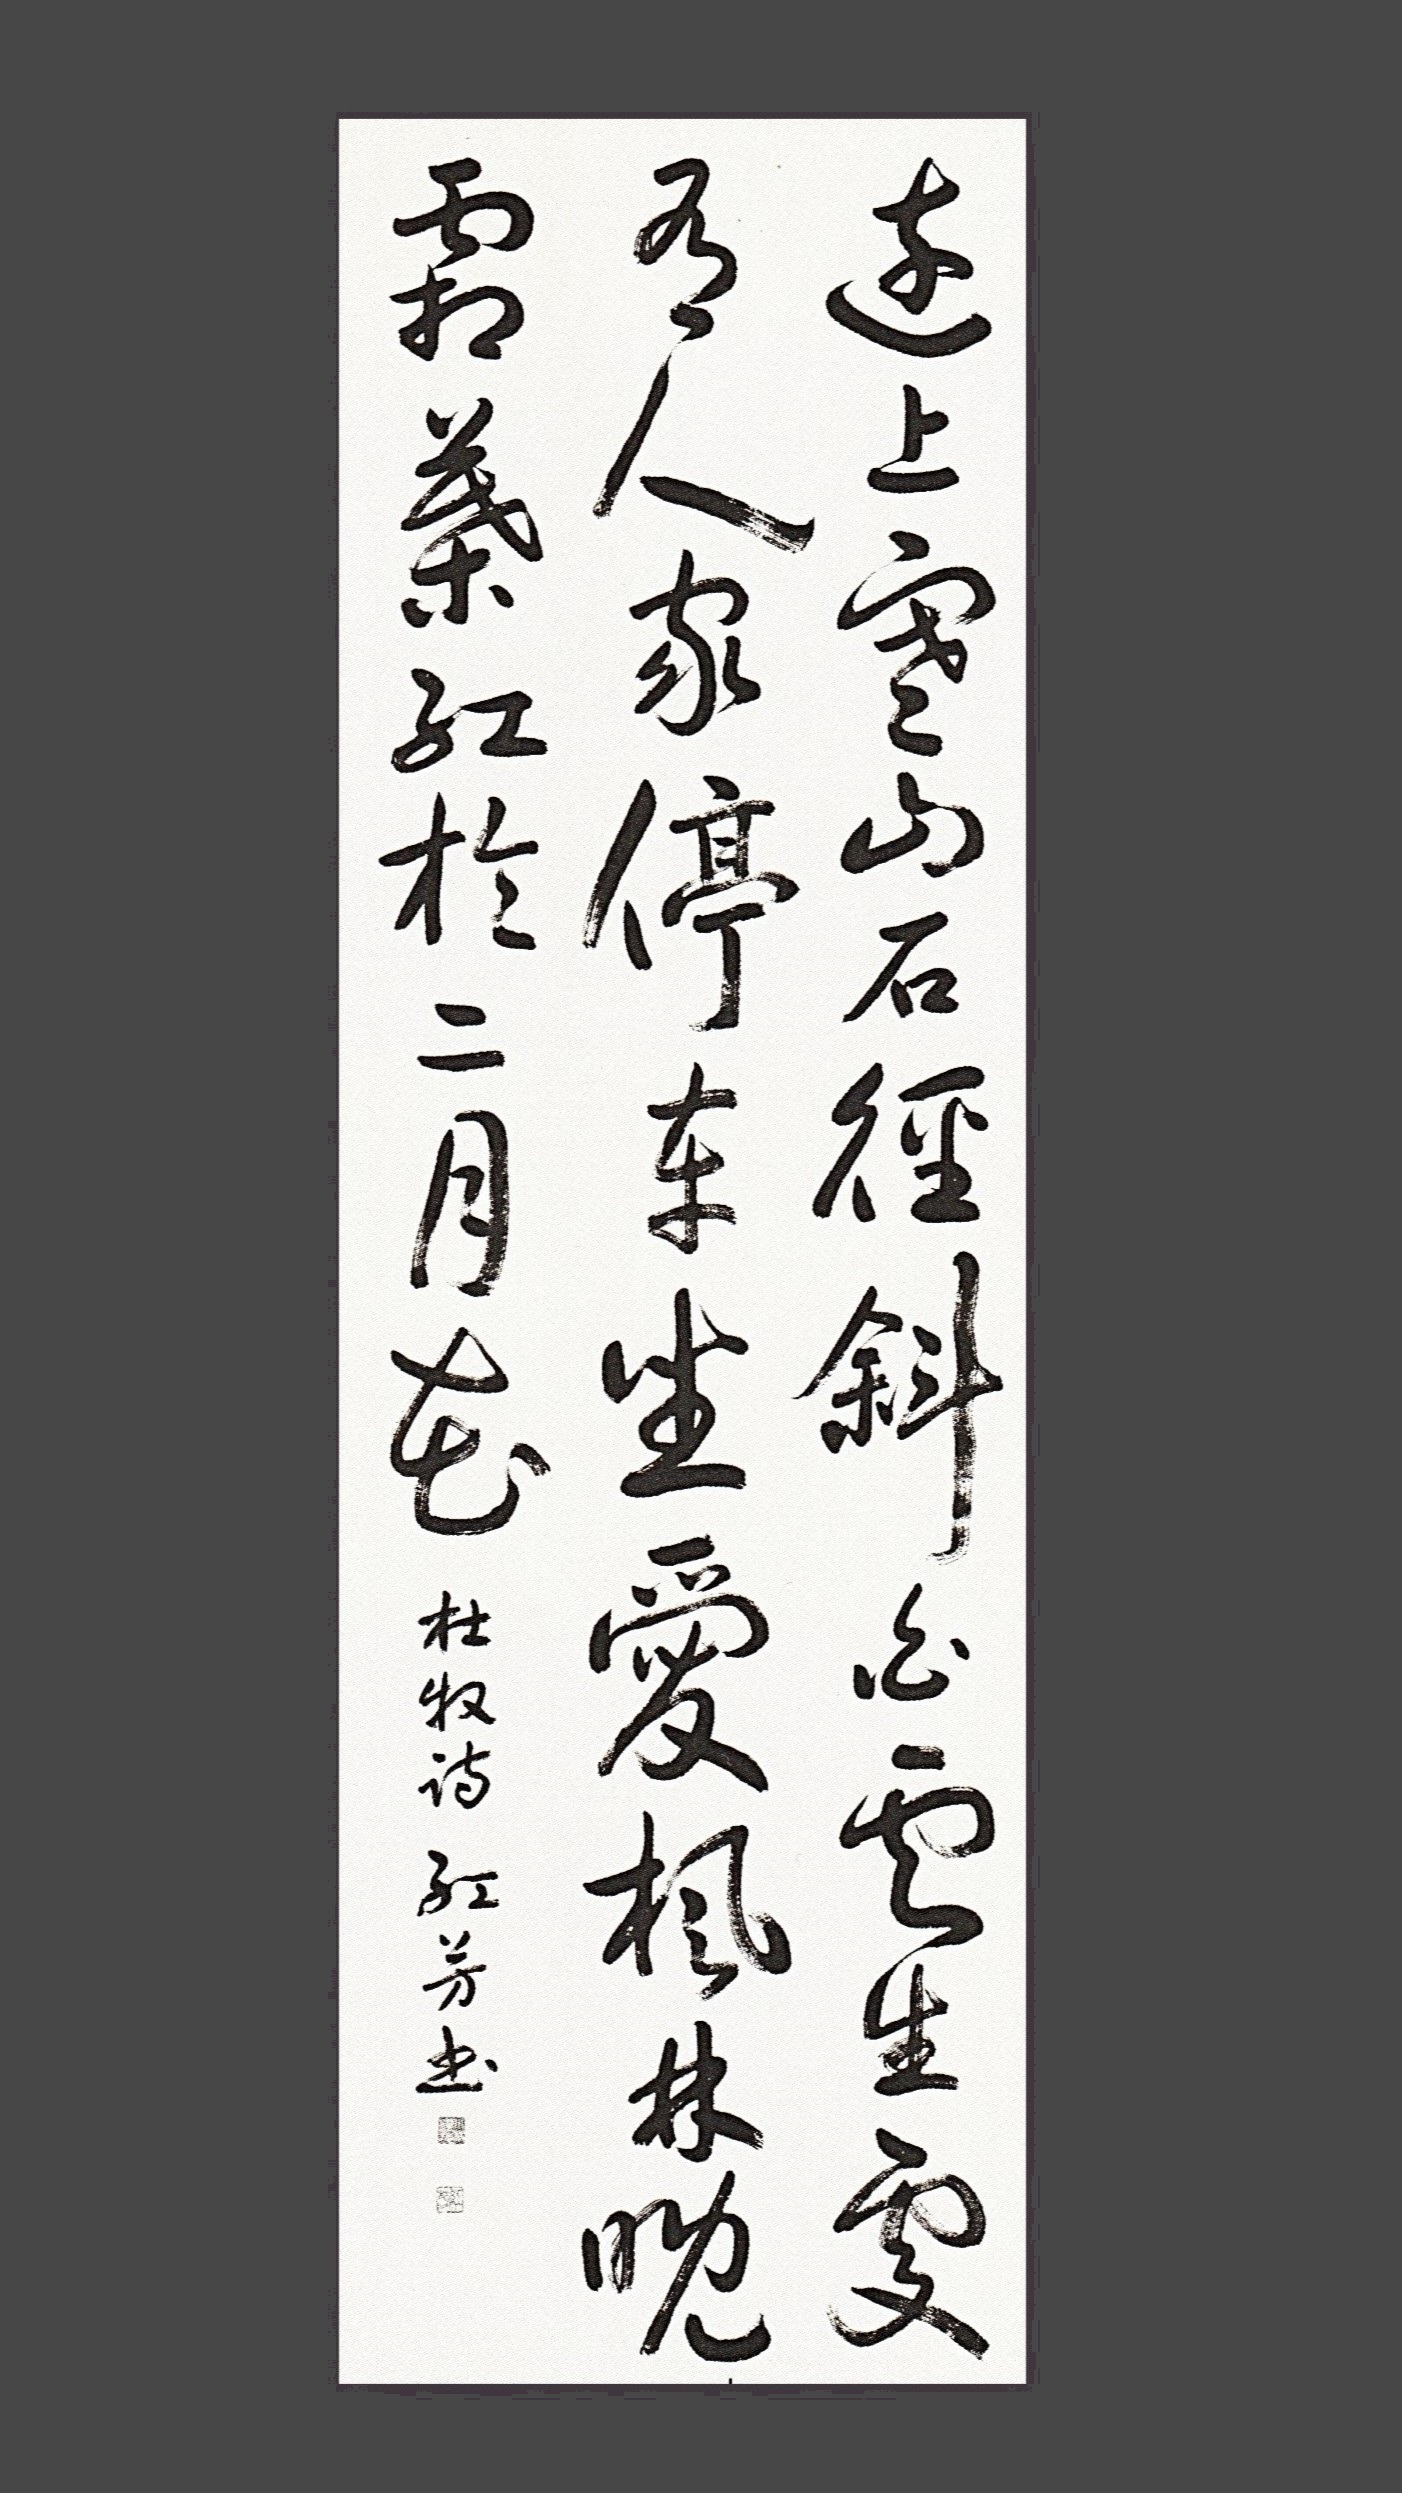 遠上寒山石徑斜白雲生處
有人家停車坐愛楓林晚
霜葉紅於二月花 杜牧詩 紅芳书